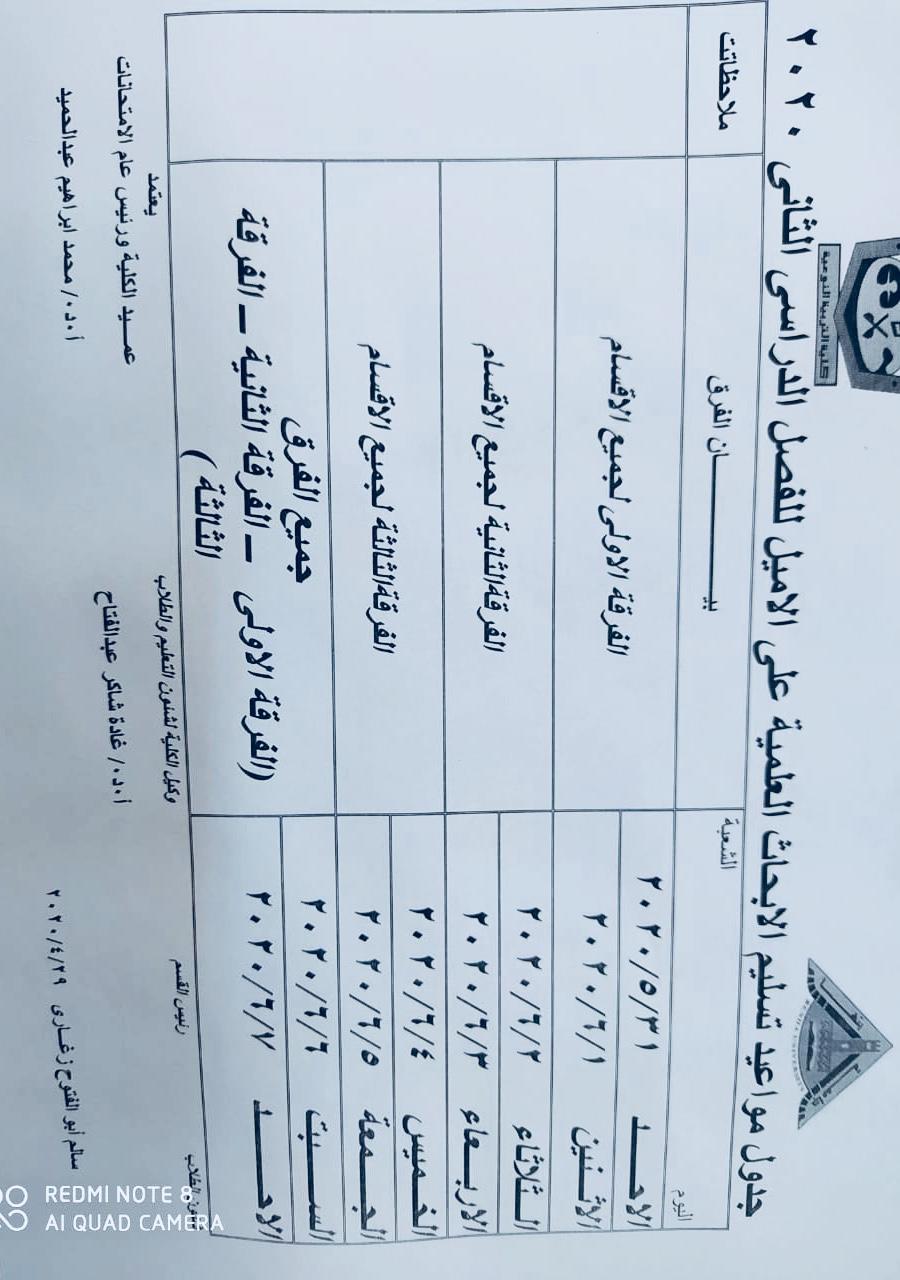 كلية التربية النوعية
جدول مواعيد تسليم الابحاث العلمية على الاميل للفصل الدراسى الثانى ٢٠٢٠
اليوم الشعبة بيـــــــان الفرق ملاحظاتت
الاحــــد ٢٠٢٠/٥/٣١ الفرقة الاولى لجميع الاقسام
الاثـنين ٢٠٢٠/٦/١
الـثلاثاء ٢٠٢٠/٦/٢ الفرقة الثانية لجميع الاقسام
الاربـعاء ٢٠٢٠/٦/٣
الخـميس ٢٠٢٠/٦/٤ الفرقة الثالثة لجميع الاقسام
الجـمعة ٢٠٢٠/٦/٥
الســبت ٢٠٢٠/٦/٦ جميع الفرق
الاحــــد ٢٠٢٠/٦/٧ (الفرقة الاولى – الفرقة الثانية – الفرقة
الثالثة )
الطلاب رئيس القسم وكيل الكلية لشئون التعليم والطلاب يعتمد
عمــيد الكلية ورئيس عام الامتحانات
سالم أبو الفتوح زغـارى ٢٠٢٠/٤/٢٩ أ.د./ غادة شاكر عبدالفتاح
أ.د./ محمد ابراهيم عبدالحميد
REDMI NOTE 8
AI QUAD CAMERA